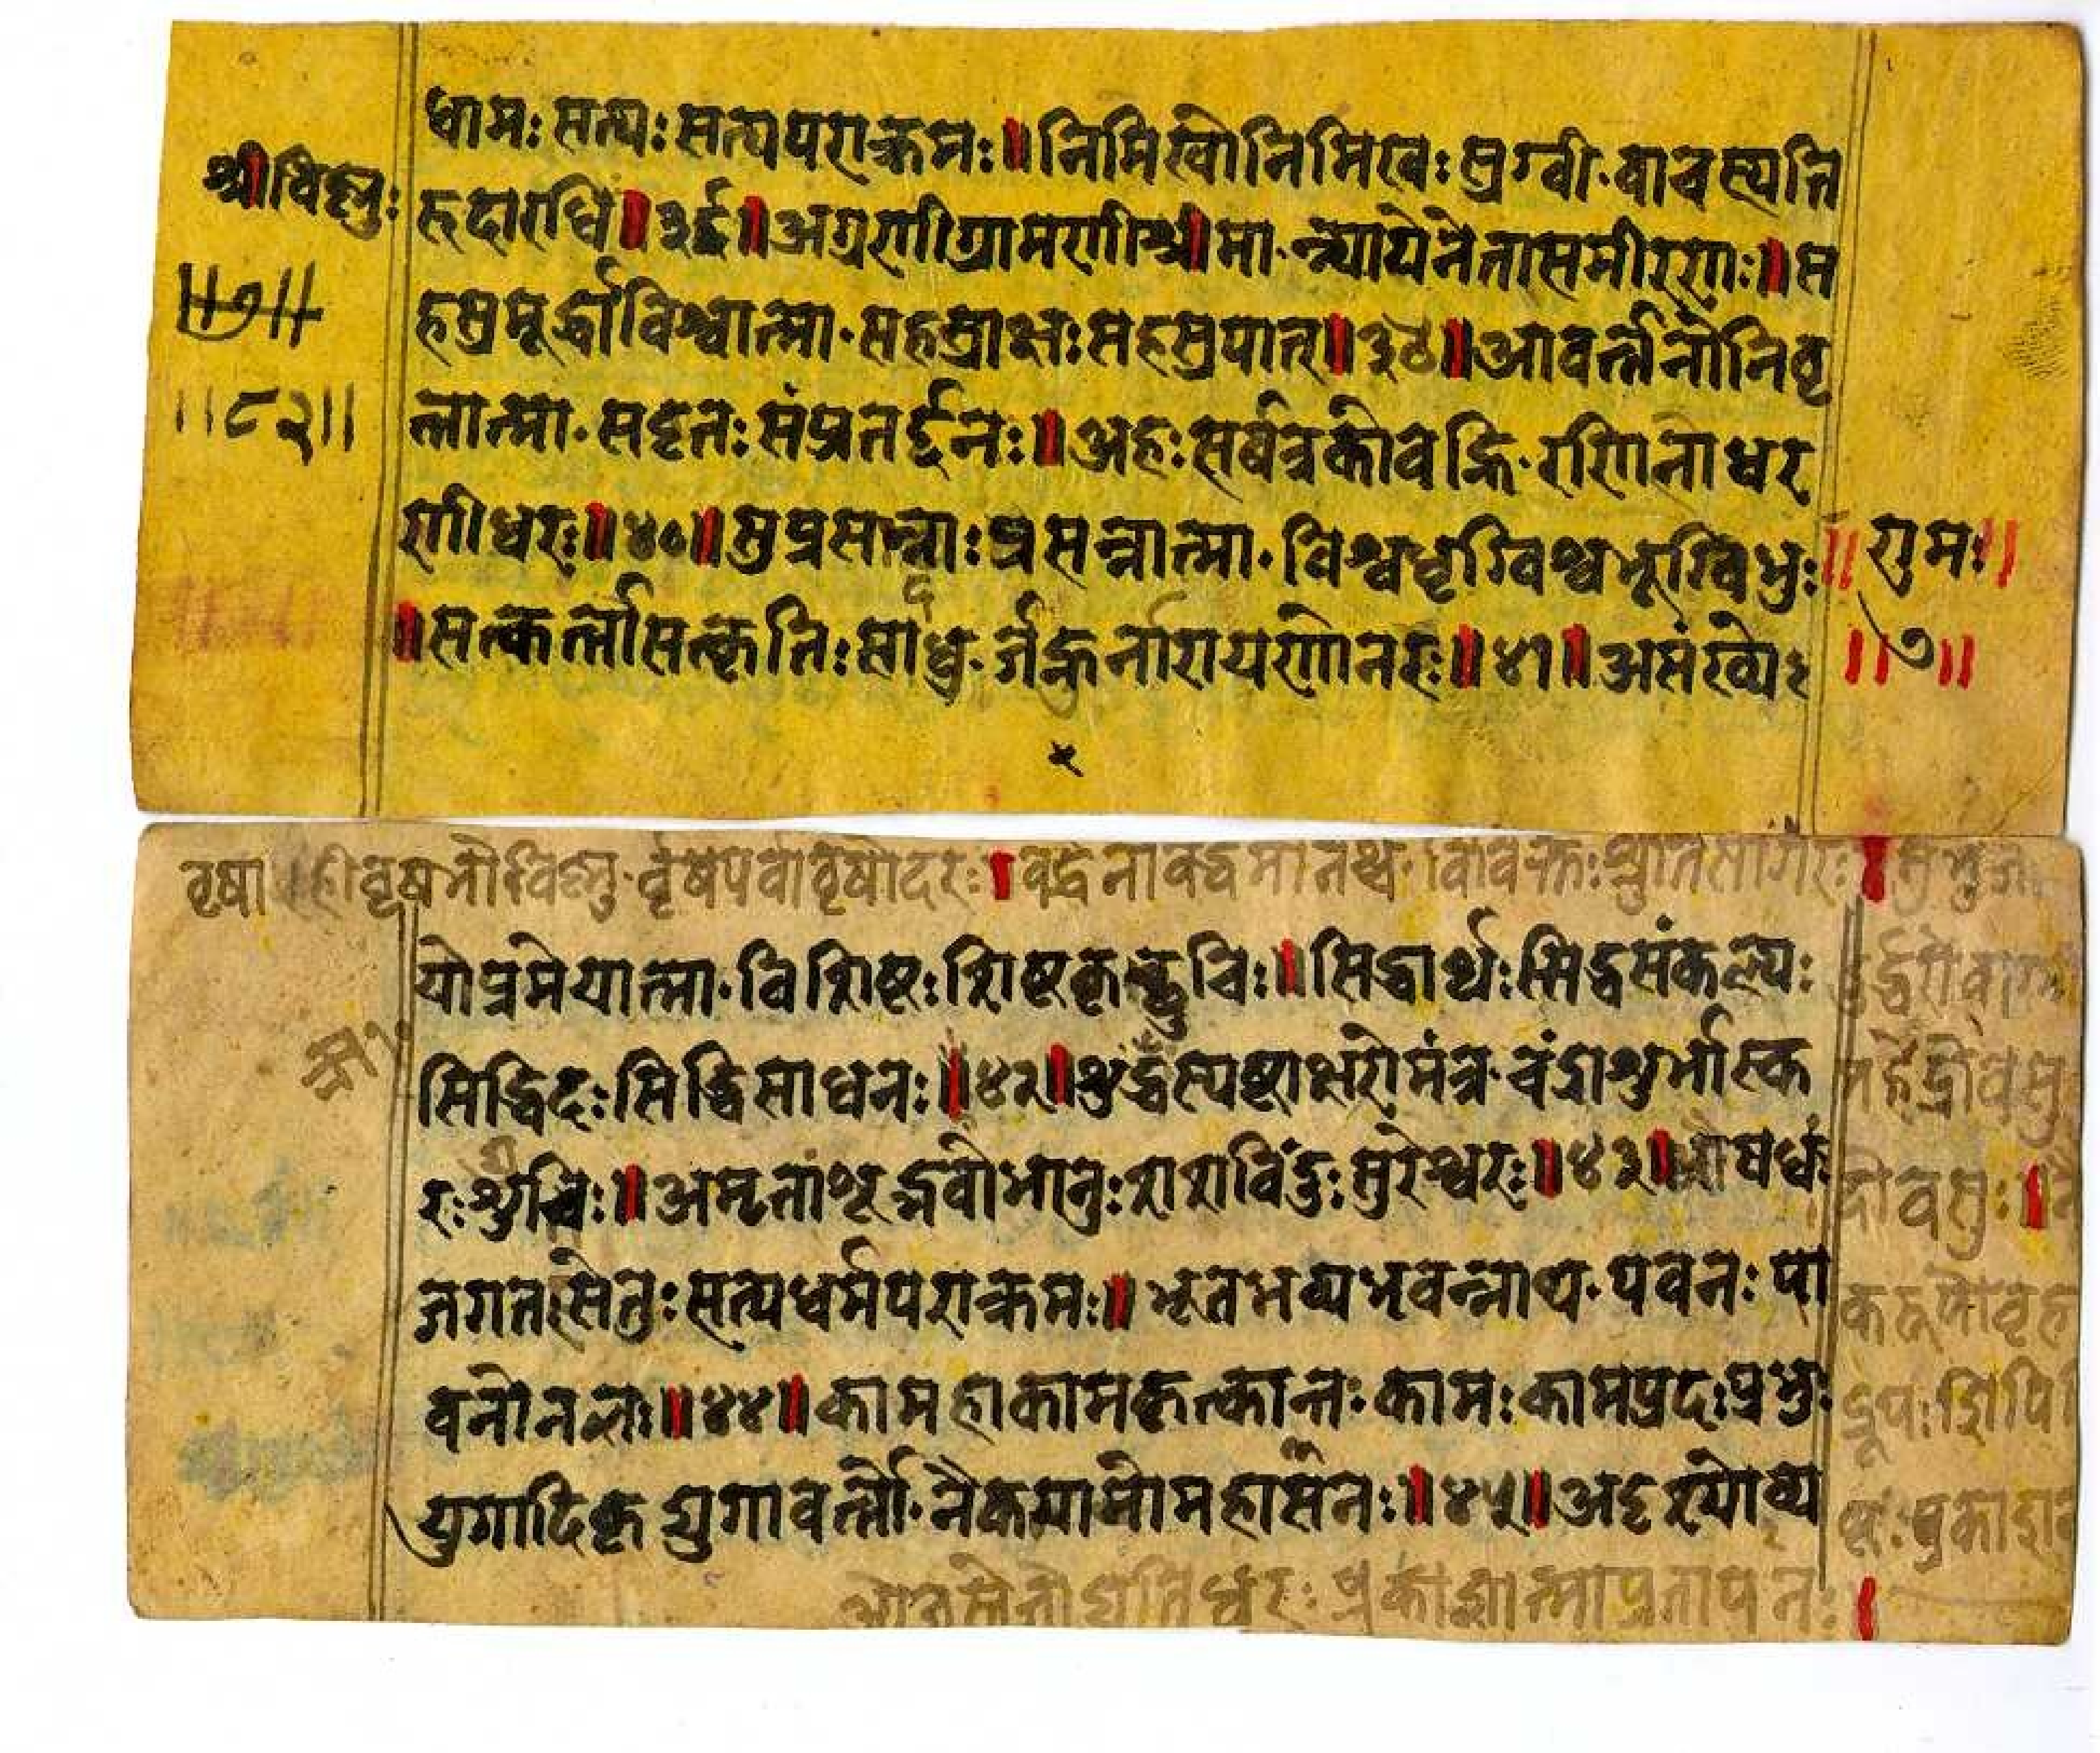 धामः सत्यः सत्यपराक्रमः॥निमिखोनिमिखः स्रग्वी·वाचस्पति
श्रीविष्णुः
रुदारधि॥३८॥अग्रणीग्रामणीश्रीमा·न्न्यायेनेतासमीरणः॥स
॥७॥
हस्रमूर्द्धाविश्वात्मा·सहस्राक्षःसहस्रपात्॥३९॥आवर्त्तनोनिवृ
॥८२॥
त्तात्मा·सवृतःसंप्रतर्द्दनः॥अहःसर्वत्रकोवह्नि·रणिलोधर
णीधरः॥४०॥सुप्रसान्नाःप्रसन्नात्मा·विश्वधृग्विश्वभूग्विभुः
॥सत्कर्त्तासत्कृतिःसाधु·र्जह्नुर्नारायणोनरः॥४१॥असंख्ये
॥ राम॥
॥७॥
वृषाहीवृषभोविष्णु·वृषपर्वावृषोदरः॥वर्द्धनोवर्द्धमानश्च·विविक्तःश्रुतिसागरः॥
योप्रमेयात्मा·विशिष्टःशिष्टकृच्छुचिः॥सिद्धार्थःसिद्धसंकल्पः
सिद्धिदःसिद्धिसाधनः॥४२॥
स्पष्टाक्षरोमंत्र·चंद्रांशुर्भास्क
रः
॥अमृतांशूद्भवोभानुःशशविंदुःसुरेश्वरः॥४३॥औषधं
जगतःसेतुःसत्यधर्मपराक्रमः॥भूतभव्यभवन्नाथ·पवनःपा
वनोनलः॥४४॥कामहाकामकृत्कान्तः·कामःकामप्रदःप्रभुः
युगादिकृद्युगावर्त्तो·नैकमायोमहासनः॥४५॥अदृश्योव्य
महेंद्रोवसु
दोवसुः॥
द्रूपःशिपि
ओजस्तेजोद्युतिधरः·प्रकाशात्माप्रतापनः॥